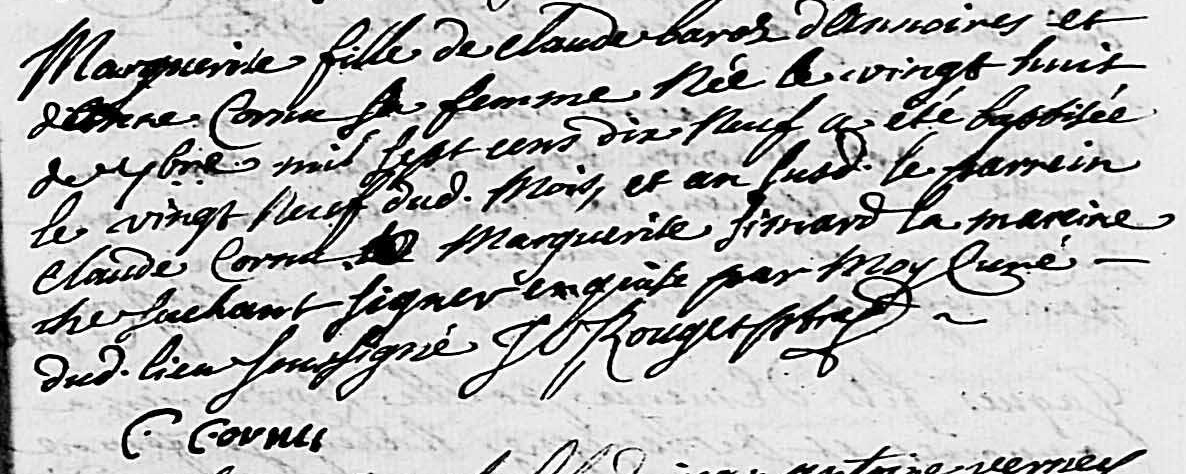 Marguerite fille de Claude baroz d'Annoires et
d'Anne Cornu sa femme née le vingt huit
de 7bre mil sept cens dix neuf a été baptisée
le vingt neuf dud. mois, et an susd. le parrein
Claude Cornu Marguerite simard la mareine
ne sachant signer enquise par moy Curé
dud. lieu soussigné J Rouget ptre
C. Cornu
antoine verney